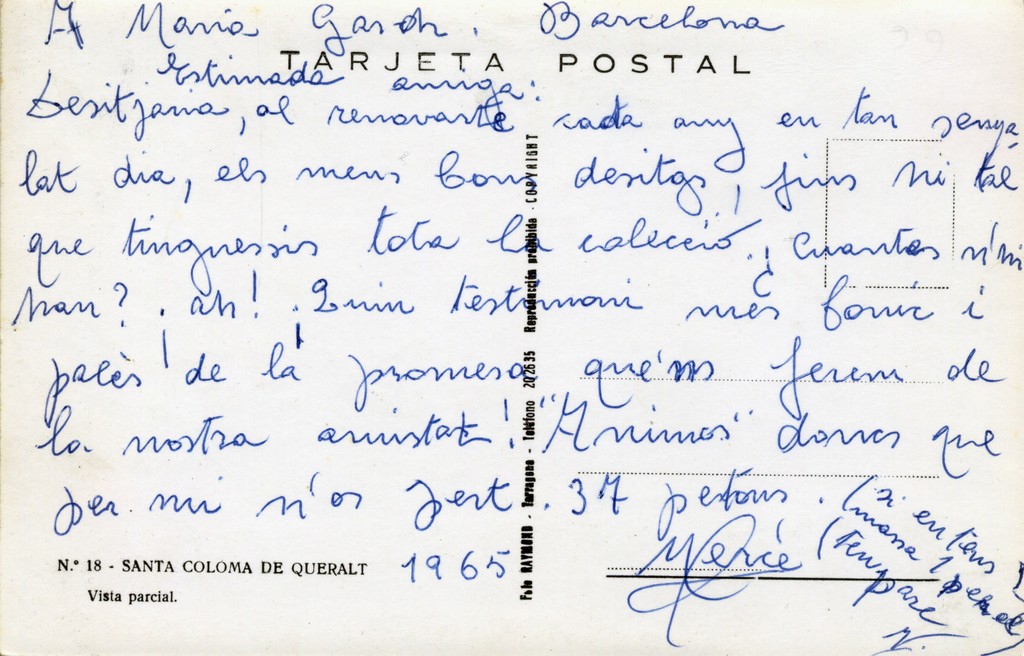 A Maria Gasch. Barcelona
TARJETA POSTAL
Estimada amiga:
Desitjaria, al renovarte cada any en tan senya-
lat dia, els meus bons desitgs, fins ni tal
que tinguessis tota la colecció. ¿Cuantes n'hi
han? . ah! . Quin testimoni més bonic i
palès de la promesa qué'ns ferem de
la nostra amistat! "Animos" doncs que
per mi n'os pert. 37 petons. (si en tens
massa 1
(fem pare
Mercè
1965
N.º 18 - SANTA COLOMA DE QUERALT
Vista parcial.
Foto RAYMOND - Tarragona - Teléfono 202635 Reproducción prohibida - COPYRIGHT